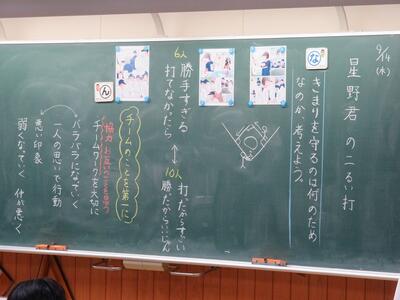 9/14(木)
星野君の二るい打
な
きまりを守るのは何のため
なのか、考えよう。
6人
勝手すぎる
打てなかったら
↔
10人
打ったからすごい
勝ったからいいじゃん
ん
チームのことを第一に
協力 お互いのことを思う
チームワークを大切に
バラバラになっていく
一人の思いで行動
悪い印象
弱くなっていく 仲が悪く